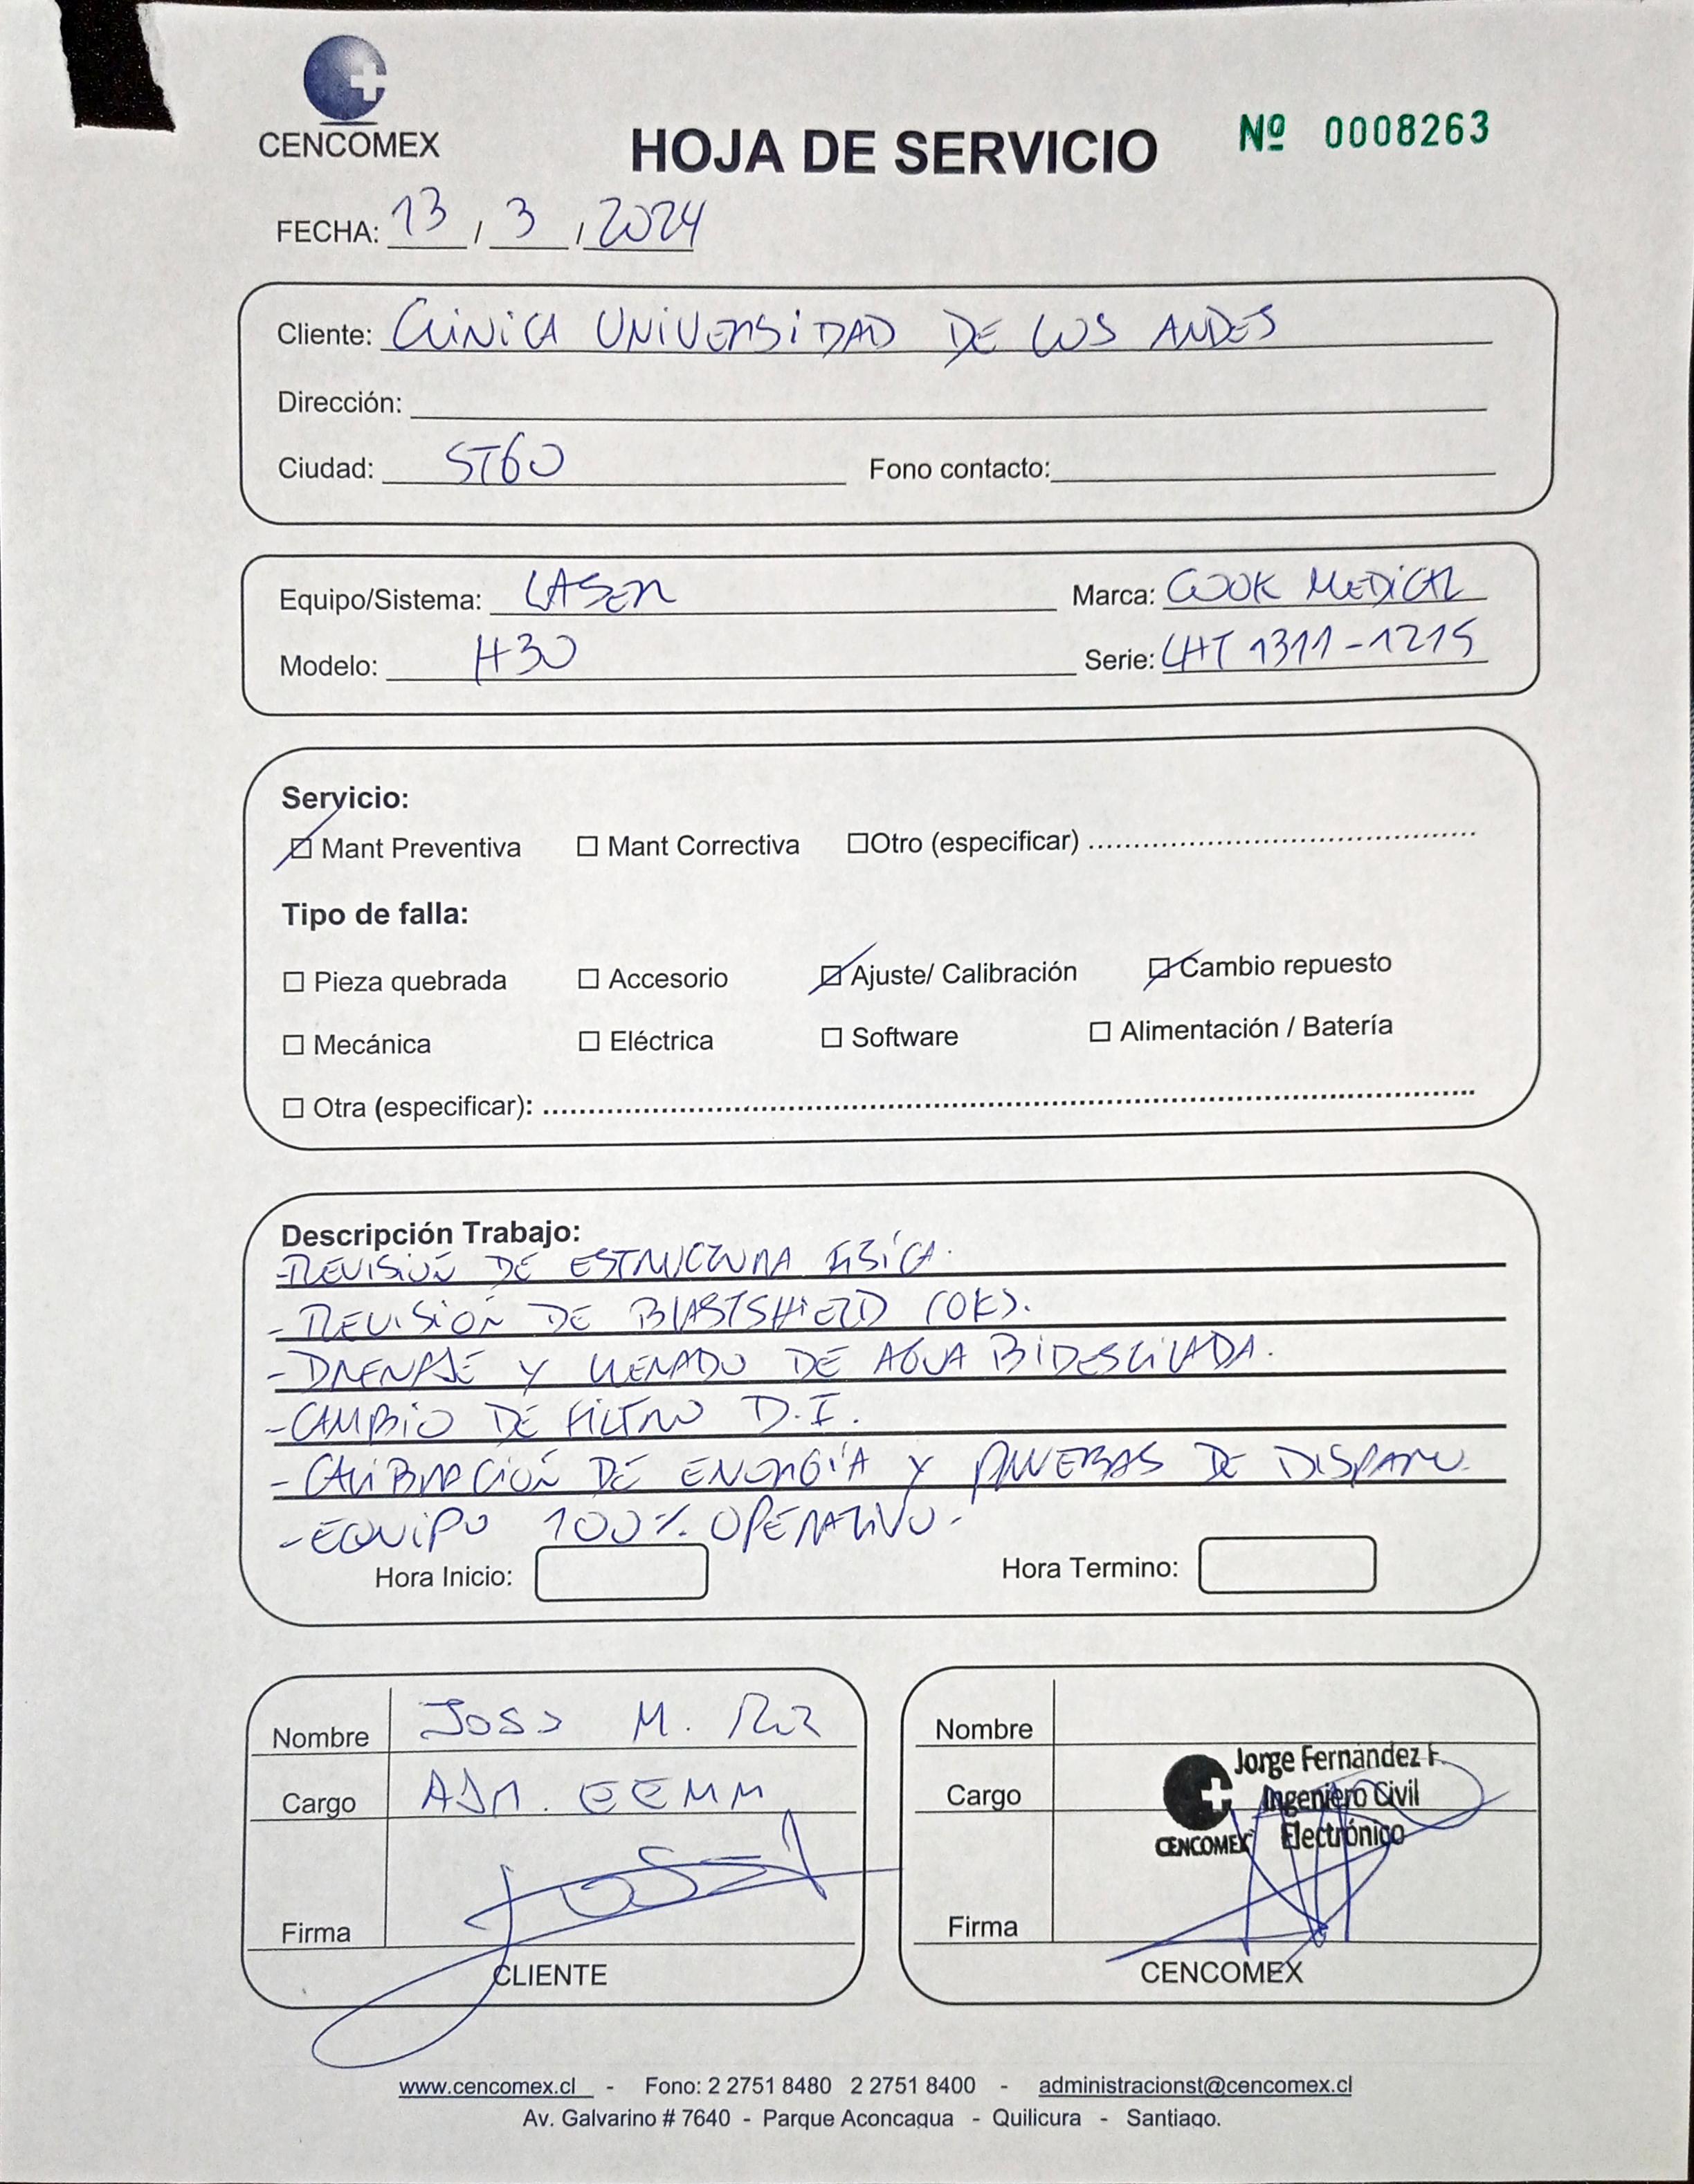 CENCOMEX
HOJA DE SERVICIO
Nº 0008263
FECHA: 13 / 3 / 2024
Cliente: CLINICA UNIVERSIDAD DE LOS ANDES
Dirección:
Ciudad: STGO Fono contacto:
Equipo/Sistema: LASER Marca: COOK MEDICAL
Modelo: H30 Serie: LHT 1311-1215
Servicio:
Mant Preventiva Mant Correctiva Otro (especificar)
Tipo de falla:
Pieza quebrada Accesorio Ajuste/ Calibración Cambio repuesto
Mecánica Eléctrica Software Alimentación / Batería
Otra (especificar):
Descripción Trabajo:
-REVISIÓN DE ESTRUCTURA FISICA.
- REVISIÓN DE BLASTSHIELD (OK).
- DRENAJE Y LLENADO DE AGUA BIDESTILADA.
- CAMBIO DE FILTRO D.I.
- CALIBRACIÓN DE ENERGÍA Y PRUEBAS DE DISPARO.
- EQUIPO 100% OPERATIVO.-
Hora Inicio: Hora Termino:
Nombre JOSE M.
Cargo ADM. EEMM
Firma
CLIENTE
Nombre
Cargo
Firma
Jorge Fernández F.
Ingeniero Civil
Electrónico
CENCOMEX
CENCOMEX
www.cencomex.cl - Fono: 2 2751 8480 2 2751 8400 - administracionst@cencomex.cl
Av. Galvarino # 7640 - Parque Aconcagua - Quilicura - Santiago.